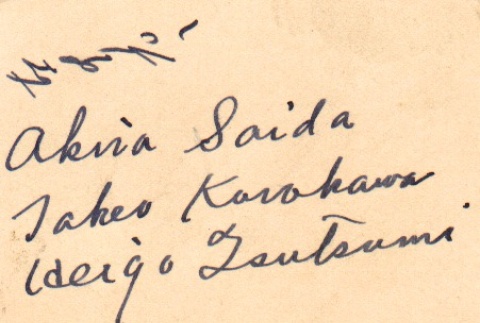 Akira Saida
Takeo Kurokawa
Keigo Tsutsumi